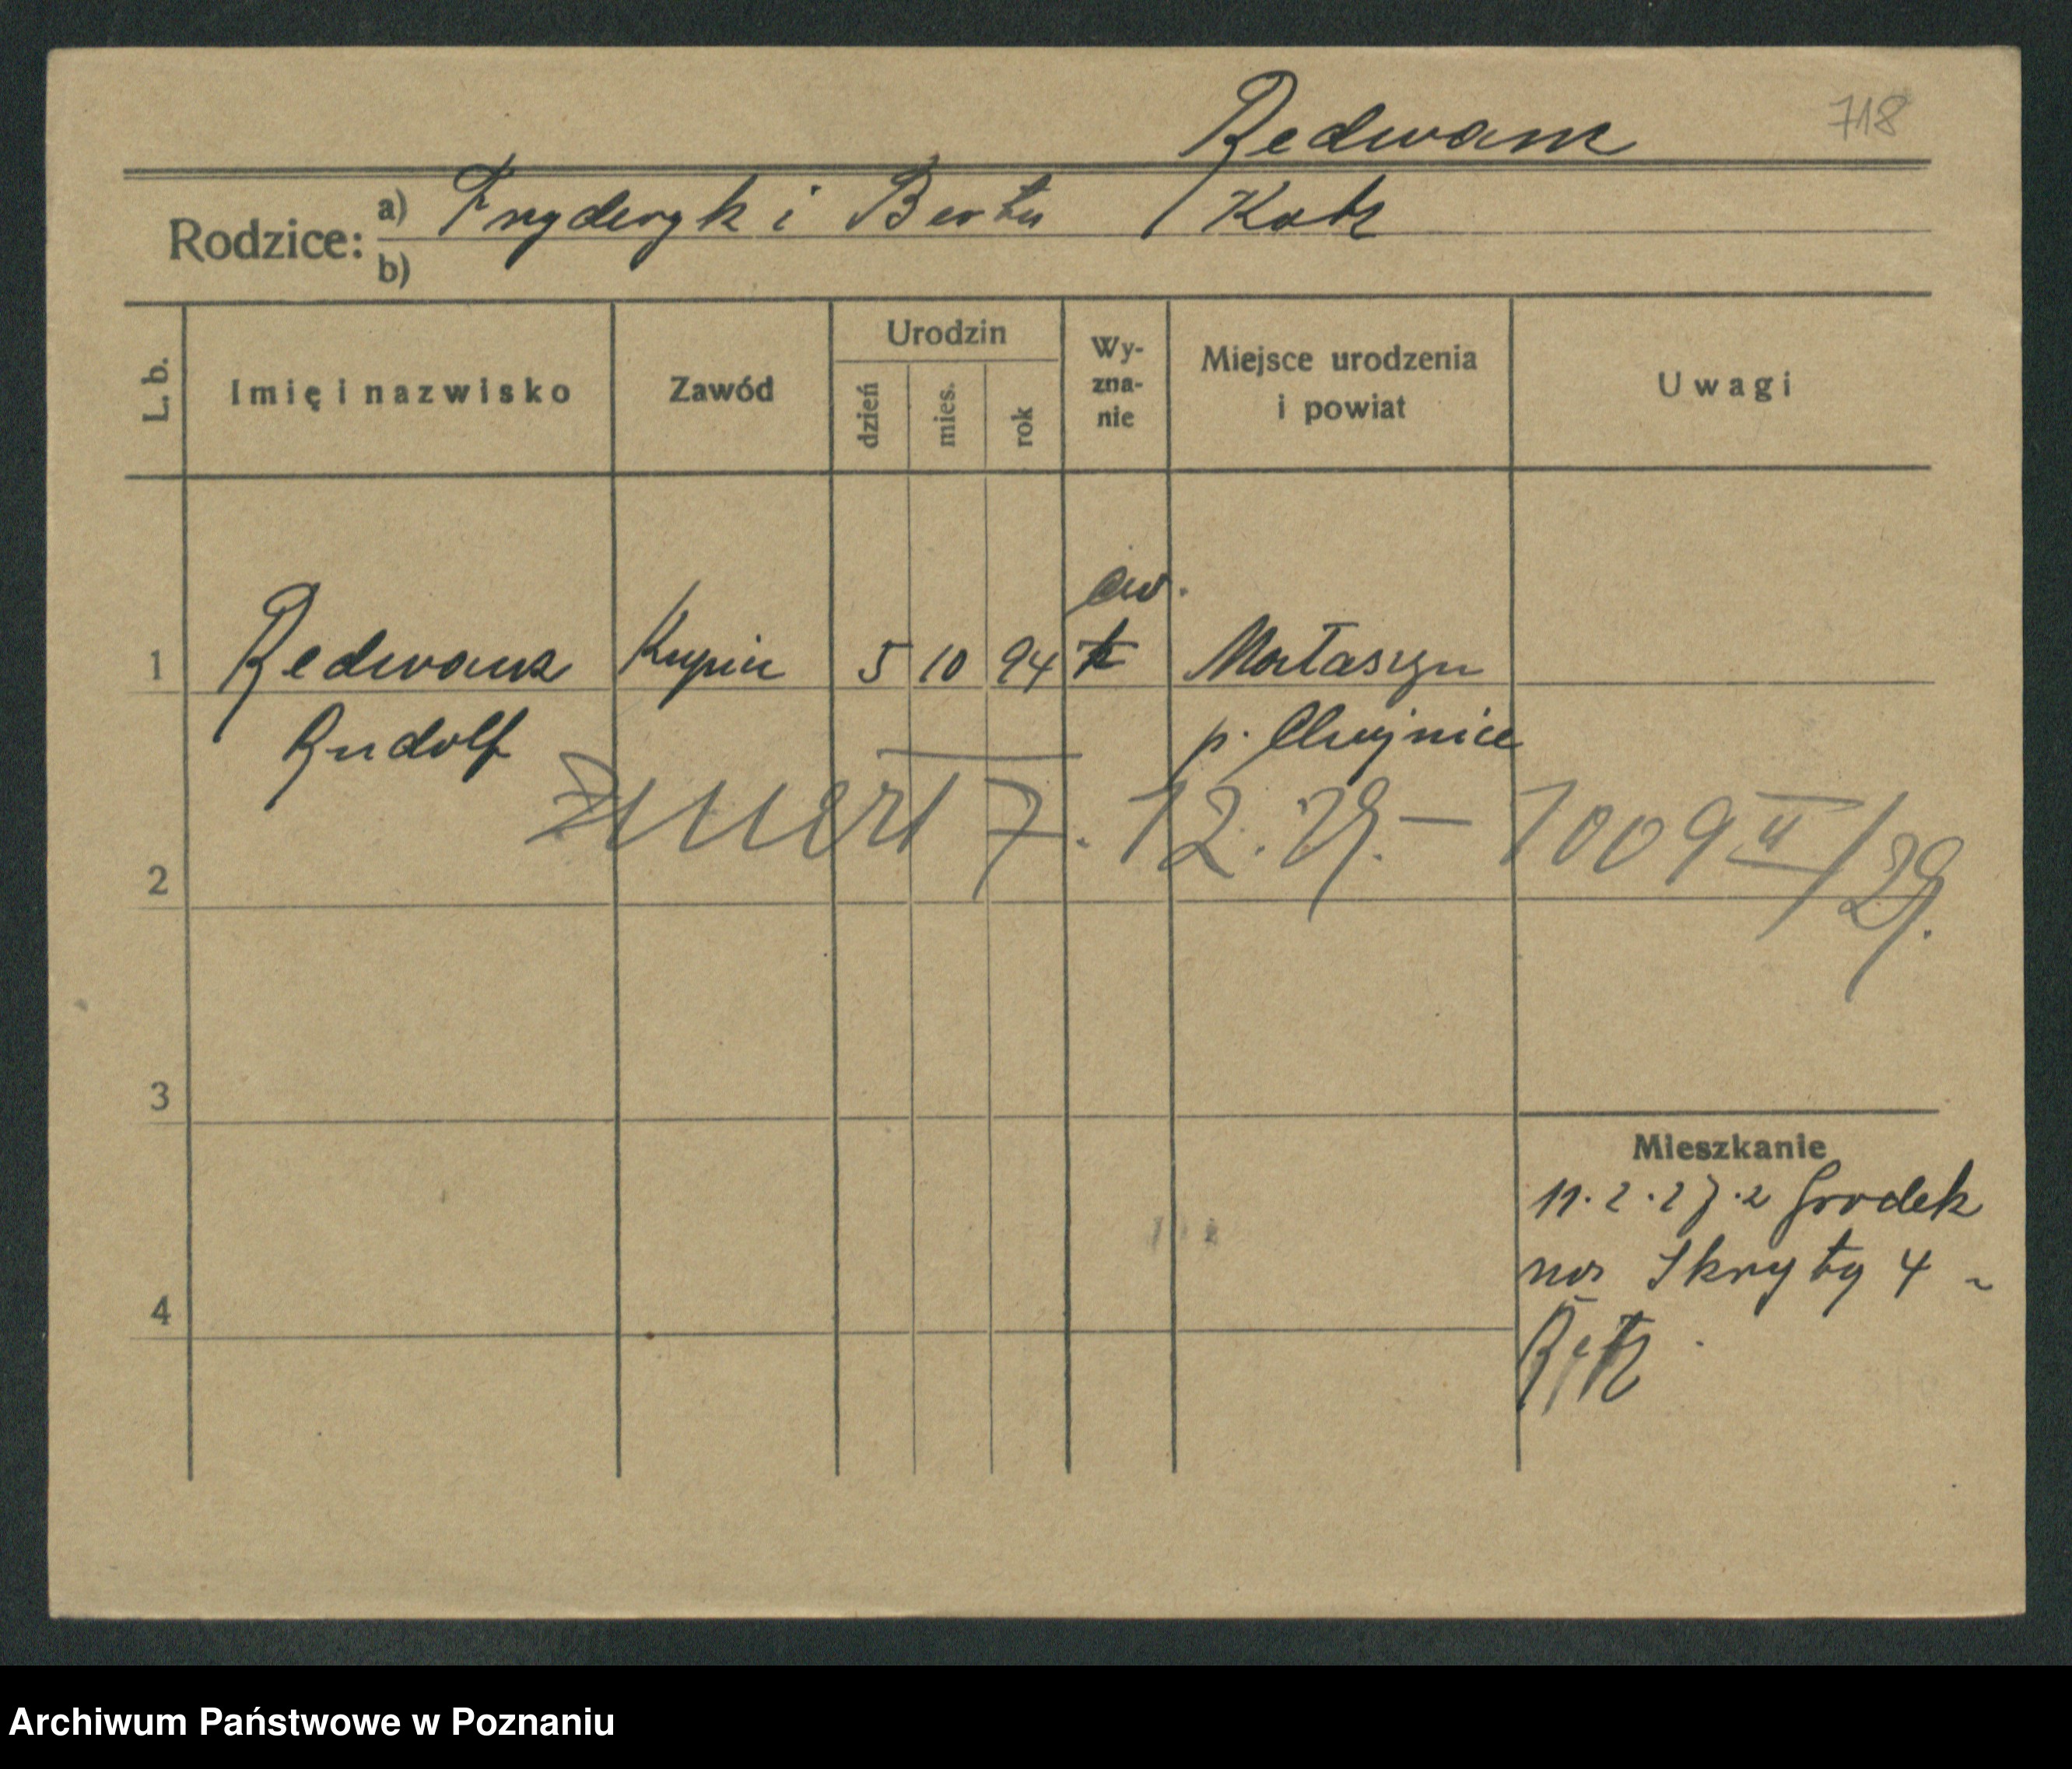 Redwanz
718
Rodzice: a) Fryderyk i Berta / Kotz
b)
L. b. Imię i nazwisko Zawód Urodzin dzień mies. rok Wy-zna-nie Miejsce urodzenia i powiat Uwagi
ew.
1 Redwanz Kupiec 5 10 94 k Mortaszyn
Rudolf p. Chojnice
zmarł 7. 12. 29. – 1009 II/29.
2
3
Mieszkanie
11.2.27. z Grodek
na Skryty 4
4
Archiwum Państwowe w Poznaniu